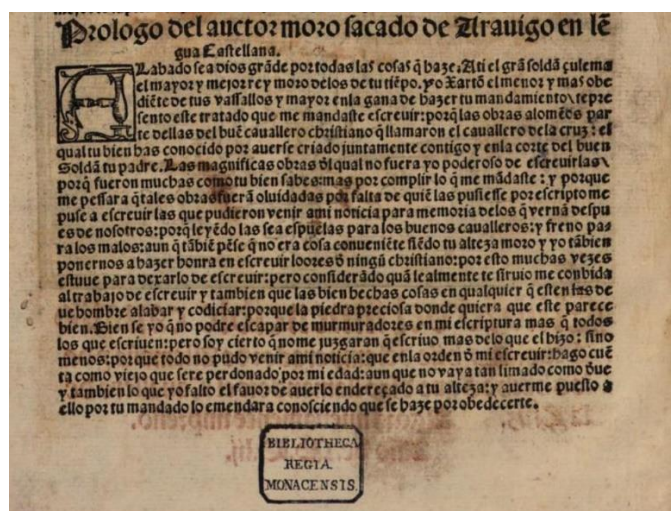 Prologo del auctor moro sacado de Arauigo en lẽ
gua Castellana.
ALabado sea dios grãde por todas las cosas q̃ haze. A ti el grã soldã çulema
el mayor y mejor rey moro delos de tu tiẽpo. yo Xartõ el menor y mas obe
diẽte de tus vassallos y mayor enla gana de hazer tu mandamiento\ repre
sento este tratado que me mandaste escreuir: porq̃ las obras alomẽos par
te dellas del buẽ cauallero christiano q̃ llamaron el cauallero dela cruz: el
qual tu bien has conocido por auerse criado juntamente contigo y enla corte del buen
Soldã tu padre. Las magnificas obras d̃l qual no fuera yo poderoso de escreuirlas\
porq̃ fueron muchas como tu bien sabes: mas por complir lo q̃ me mãdaste: y porque
me pessara q̃ tales obras fuerã oluidadas por falta de quiẽ las pusiesse por escripto me
puse a escreuir las que pudieron venir ami noticia para memoria delos q̃ vernã despu
es de nosotros: porq̃ leyẽdo las sea espuelas para los buenos caualleros: y freno pa
ra los malos: aun q̃ tãbiẽ pẽse q̃ no era cosa conueniẽte siẽdo tu alteza moro y yo tãbien
ponernos a hazer honra en escreuir loores d̃ ningũ christiano: por esto muchas vezes
estuue para dexarlo de escreuir: pero considerãdo quã lealmente te siruio me conbida
al trabajo de escreuir y tambien que las bien hechas cosas en qualquier q̃ esten las de
ue hombre alabar y codiciar: porque la piedra preciosa donde quiera que este parece
bien. Bien se yo q̃ no podre escapar de murmuradores en mi escriptura mas q̃ todos
los que escriuen: pero soy cierto q̃ nome juzgaran q̃ escriuo mas delo que el hizo: sino
menos: por que todo no pudo venir ami noticia: que enla orden d̃ mi escreuir: hago cuẽ
ta como viejo que sere perdonado por mi edad: aun que no vaya tan limado como d̃ue
y tambien lo que yo falto el fauor de auerlo endereçado a tu alteza: y auerme puesto a
ello por tu mandado lo emendara conosciendo que se haze por obedecerte.
BIBLIOTHECA
REGIA
MONACENSIS.